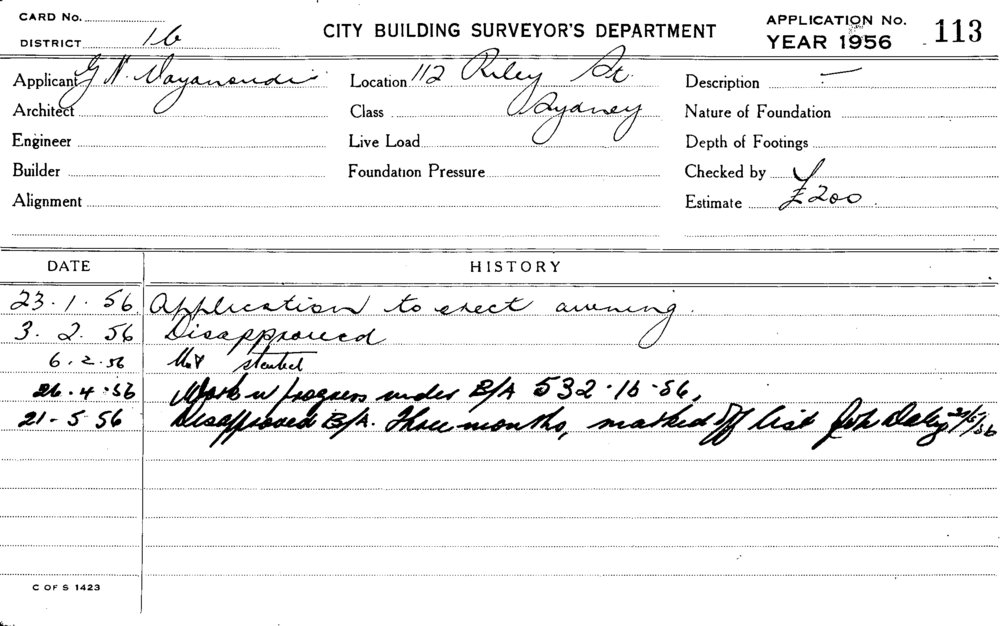 CARD No.
DISTRICT 16
CITY BUILDING SURVEYOR'S DEPARTMENT
APPLICATION No.
YEAR 1956
113
Applicant G N
Location 112 Riley St
Description —
Architect
Class Sydney
Nature of Foundation
Engineer
Live Load
Depth of Footings
Builder
Foundation Pressure
Checked by
Alignment
Estimate £200
DATE HISTORY
23.1.56 Application to erect awning.
3.2.56 Disapproved
6.2.56 Not started
26.4.56 Work in progress under B/A 532-16-56,
21-5-56 Disapproved B/A. Three months, marked off list Daley
C OF S 1423